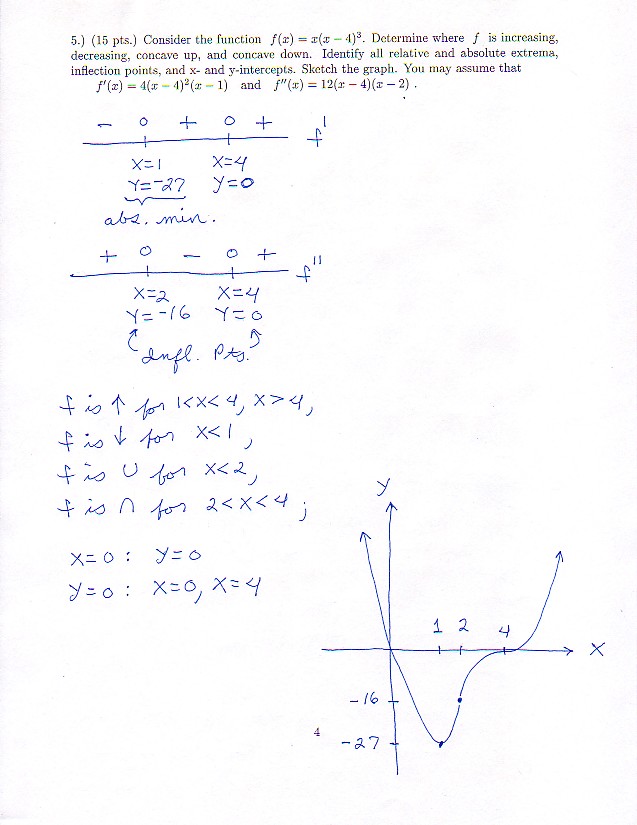 5.) (15 pts.) Consider the function f(x) = x(x − 4)³. Determine where f is increasing,
decreasing, concave up, and concave down. Identify all relative and absolute extrema,
inflection points, and x- and y-intercepts. Sketch the graph. You may assume that
f′(x) = 4(x − 4)²(x − 1) and f″(x) = 12(x − 4)(x − 2) .
− 0 + 0 + f′
x=1 x=4
y=-27 y=0
abs. min.
+ 0 − 0 + f″
x=2 x=4
y=-16 y=0
Infl. Pts.
f is ↑ for 1<x<4, x>4,
f is ↓ for x<1,
f is ∪ for x<2,
f is ∩ for 2<x<4;
x=0: y=0
y=0: x=0, x=4
y
1 2 4
x
-16
-27
4